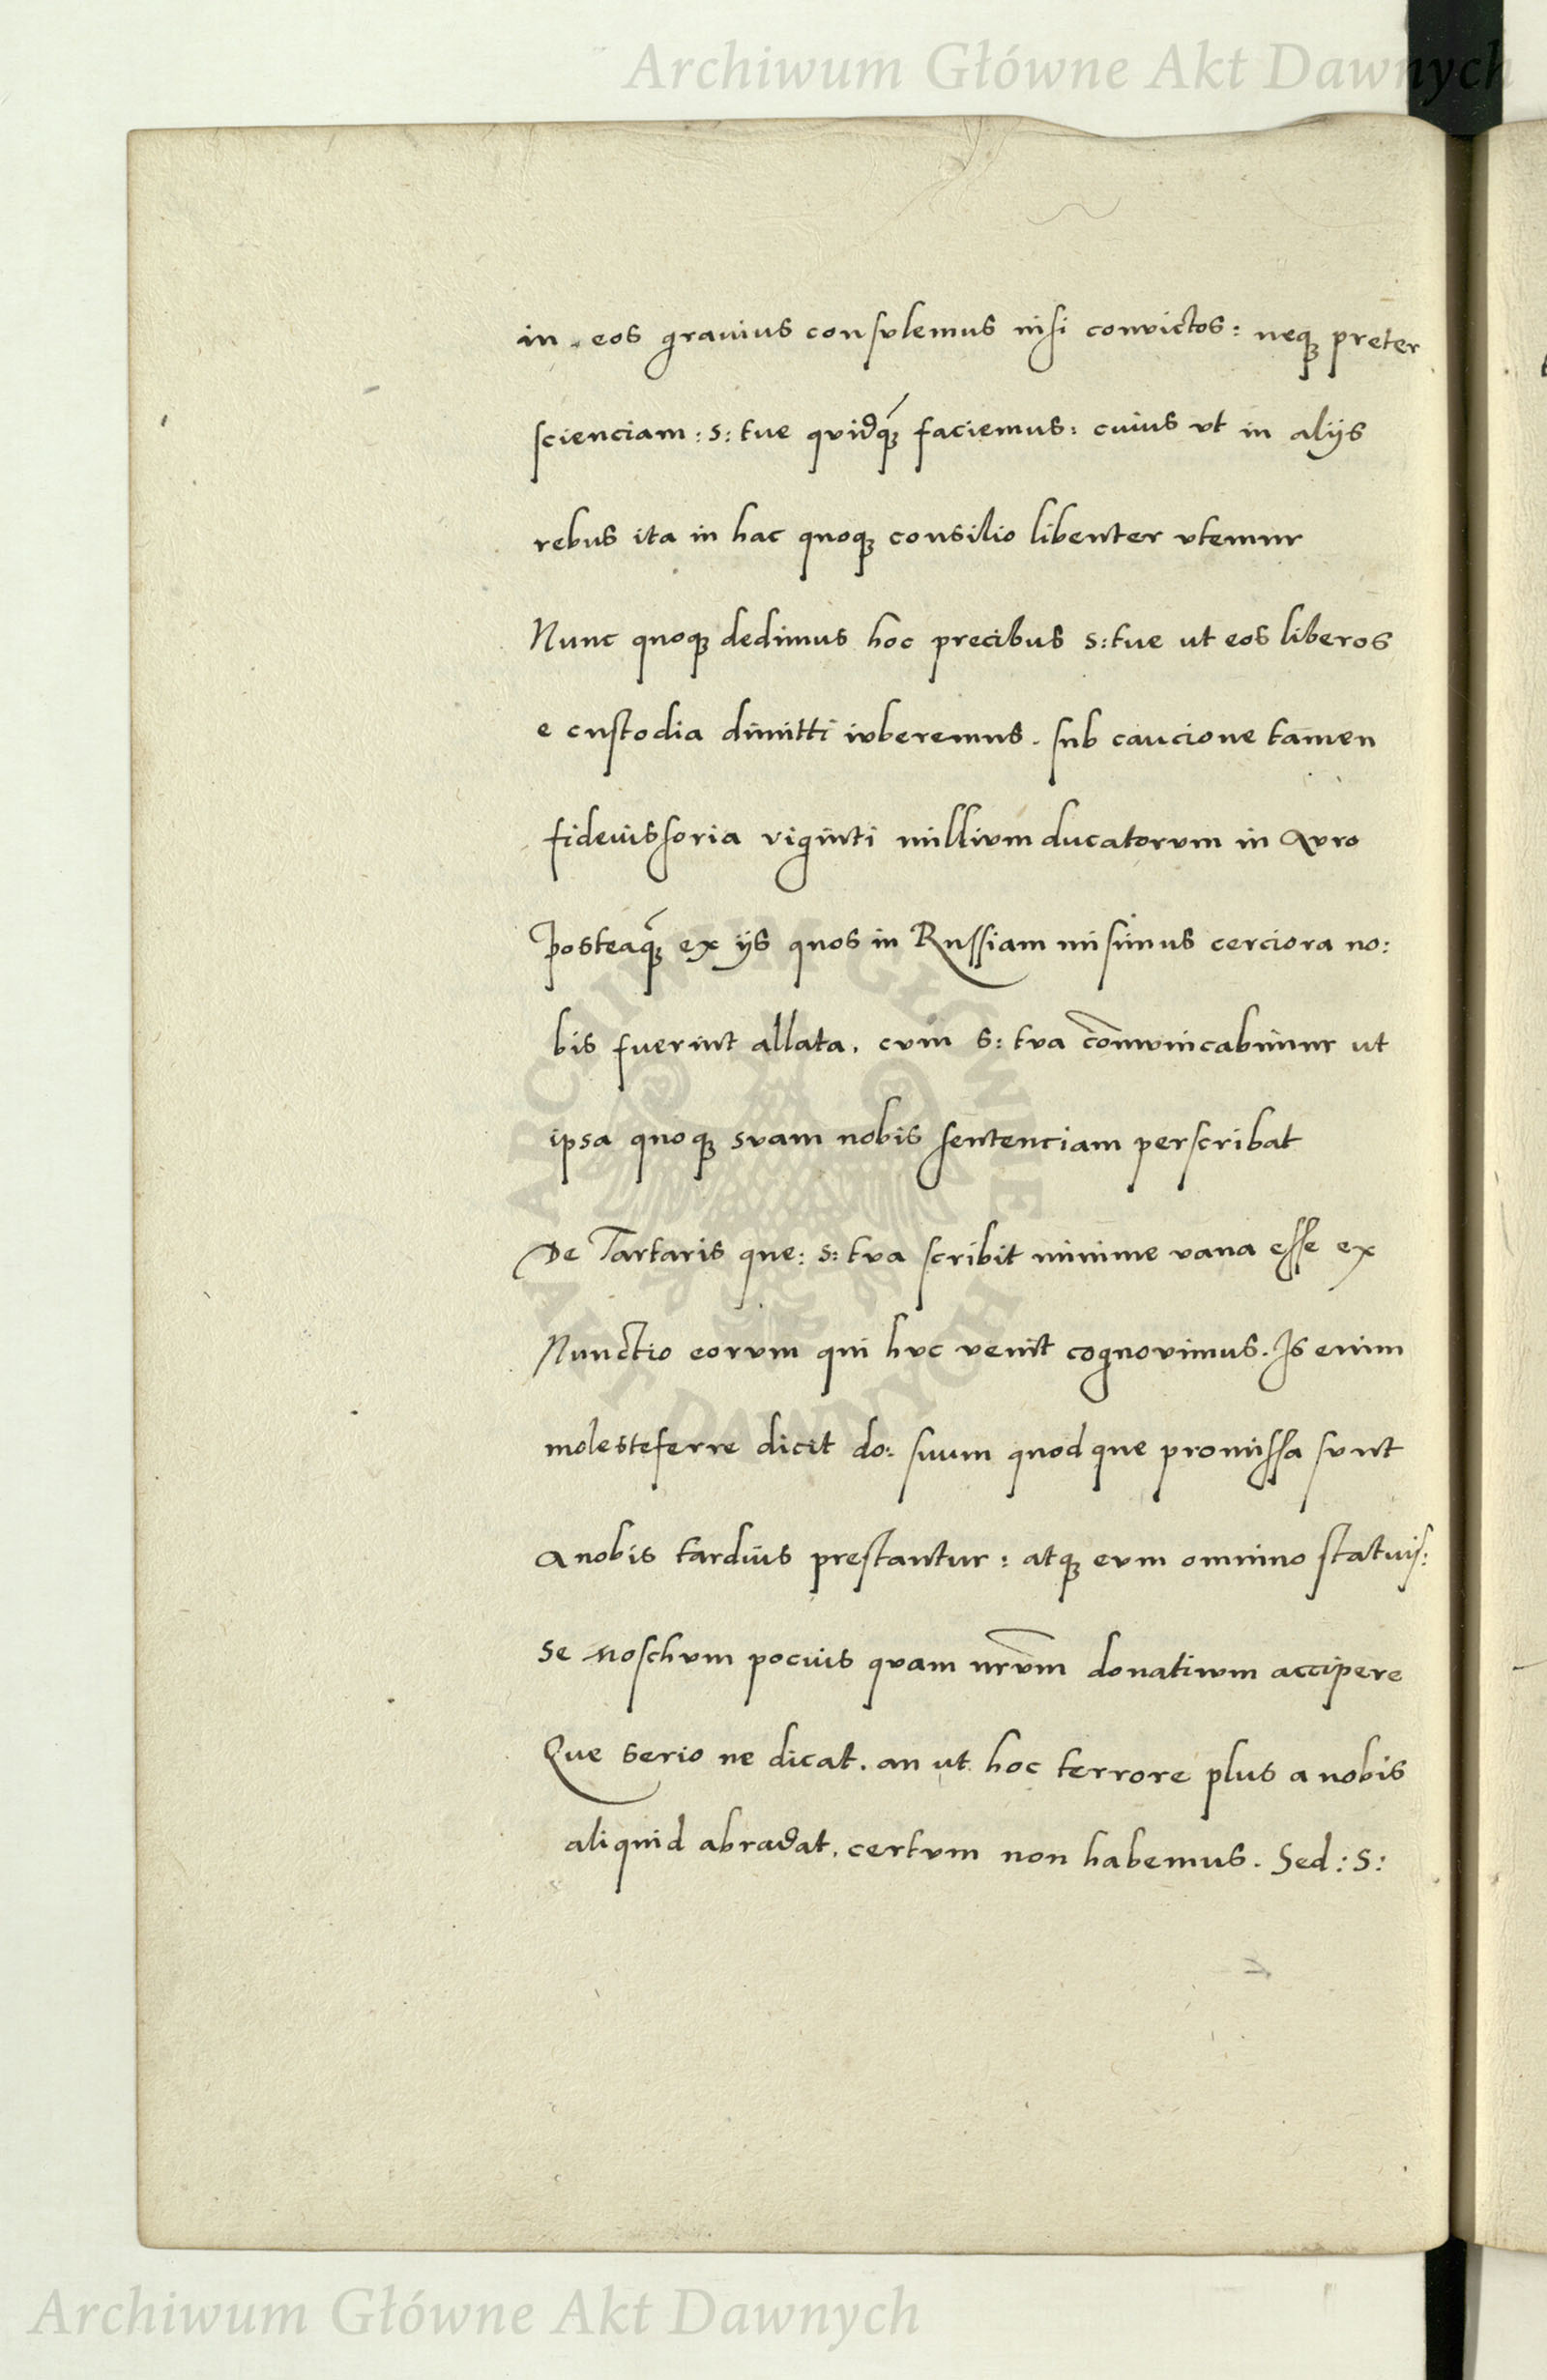 Archiwum Główne Akt Dawnych
in eos gravius consulemus nisi convictos: neqꝫ preter
scienciam: s: tue quidqꝫ́ faciemus: cuius ut in alijs
rebus ita in hac quoqꝫ consilio libenter vtemur
Nunc quoqꝫ dedimus hoc precibus s: tue ut eos liberos
e custodia dimitti iuberemus. sub caucione tamen
fideiussoria viginti millium ducatorum in Auro
Posteaqꝫ̃ ex ijs quos in Russiam misimus cerciora no:
bis fuerint allata, cum s: tua cõmunicabimur ut
ipsa quoqꝫ suam nobis sentenciam perscribat
De Tartaris que: s: tua scribit minime vana esse ex
Nunctio eorum qui huc venit cognovimus. Is enim
molesteferre dicit do: suum quod que promissa sunt
a nobis tardius prestantur: atqꝫ eum omnino statuis:
se Moschum pocius quam nrũm donativum accipere
Que serio ne dicat. an ut hoc terrore plus a nobis
aliquid abradat, certum non habemus. Sed: S:
ARCHIWUM GŁÓWNE AKT DAWNYCH
Archiwum Główne Akt Dawnych